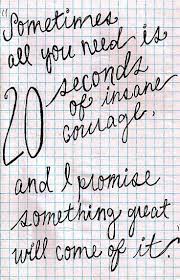 "Sometimes
all you need is
20 seconds
of insane
courage,
and I promise
something great
will come of it."